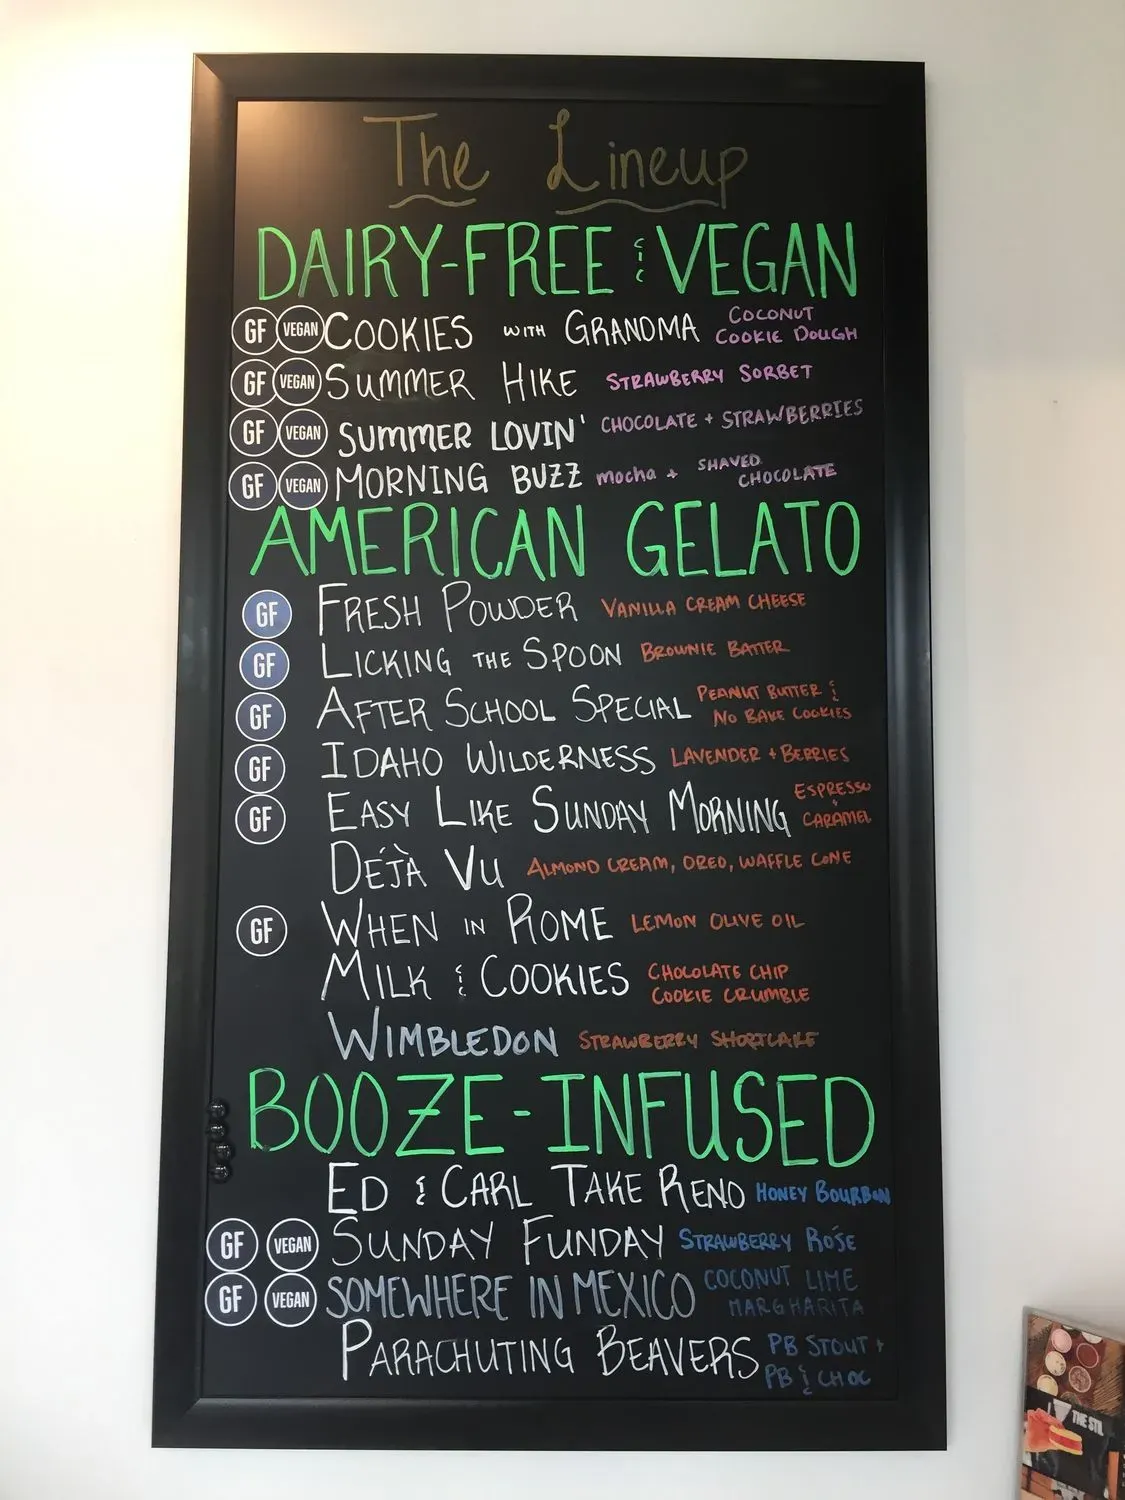 The Lineup
DAIRY-FREE & VEGAN
GF VEGAN COOKIES WITH GRANDMA COCONUT COOKIE DOUGH
GF VEGAN SUMMER HIKE STRAWBERRY SORBET
GF VEGAN SUMMER LOVIN' CHOCOLATE + STRAWBERRIES
GF VEGAN MORNING BUZZ mocha + SHAVED CHOCOLATE
AMERICAN GELATO
GF FRESH POWDER VANILLA CREAM CHEESE
GF LICKING THE SPOON BROWNIE BATTER
GF AFTER SCHOOL SPECIAL PEANUT BUTTER & NO BAKE COOKIES
GF IDAHO WILDERNESS LAVENDER + BERRIES
GF EASY LIKE SUNDAY MORNING ESPRESSO + CARAMEL
DÉJÀ VU ALMOND CREAM, OREO, WAFFLE CONE
GF WHEN IN ROME LEMON OLIVE OIL
MILK & COOKIES CHOCOLATE CHIP COOKIE CRUMBLE
WIMBLEDON STRAWBERRY SHORTCAKE
BOOZE-INFUSED
ED & CARL TAKE RENO HONEY BOURBON
GF VEGAN SUNDAY FUNDAY STRAWBERRY ROSÉ
GF VEGAN SOMEWHERE IN MEXICO COCONUT LIME MARGHARITA
PARACHUTING BEAVERS PB STOUT + PB & CHOC
THE STIL